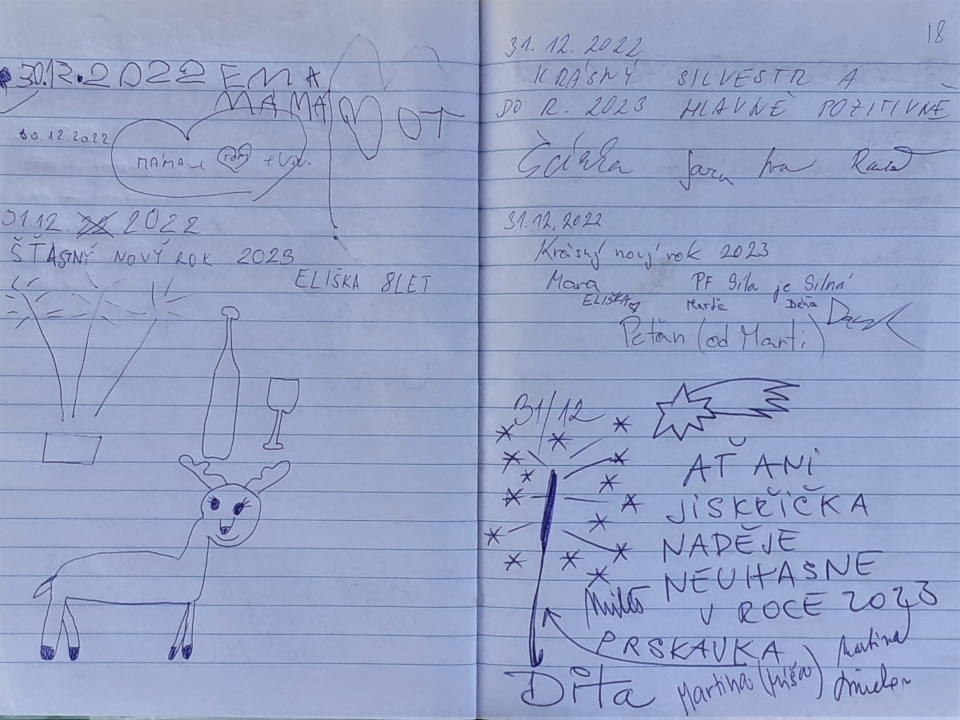 30.12.2022 EMA
MÁMA
OT
30.12.2022
MÁMA
31.12. 2022
ŠŤASTNÝ NOVÝ ROK 2023
ELIŠKA 8LET
18
31. 12. 2022
KRÁSNÝ SILVESTR A
DO R. 2023 HLAVNĚ POZITIVNĚ
Šárka Jara Iva
31.12.2022
Krásný nový rok 2023
Mara PF Síla je Silná
ELIŠKA
Peťan (od Marti)
31/12
AŤ ANI
JISKŘIČKA
NADĚJE
NEUHASNE
V ROCE 2023
PRSKAVKA
Martina
Dita Martina (Míša)